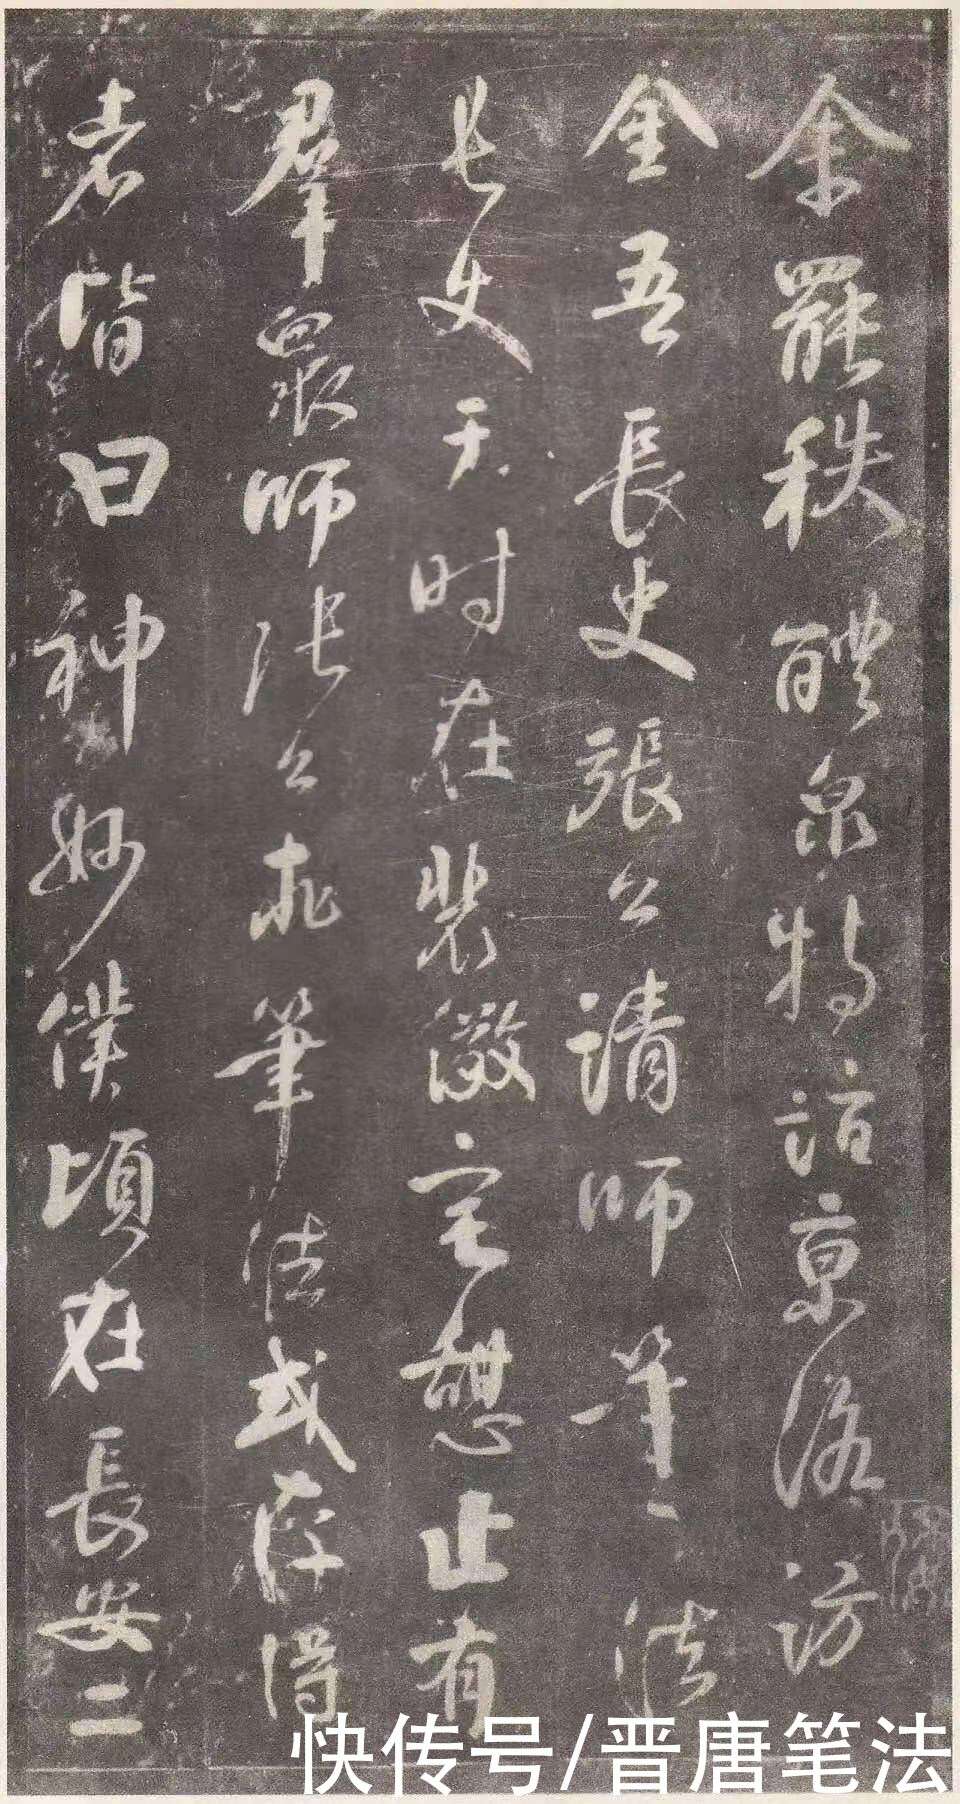 余罷秩醴泉特詣京洛訪
金吾長史張公請師筆法
長史于時在裴儆宅憩止有
羣衆師張公求筆法或存得
者皆曰神妙僕頃在長安二
快传号/晋唐笔法